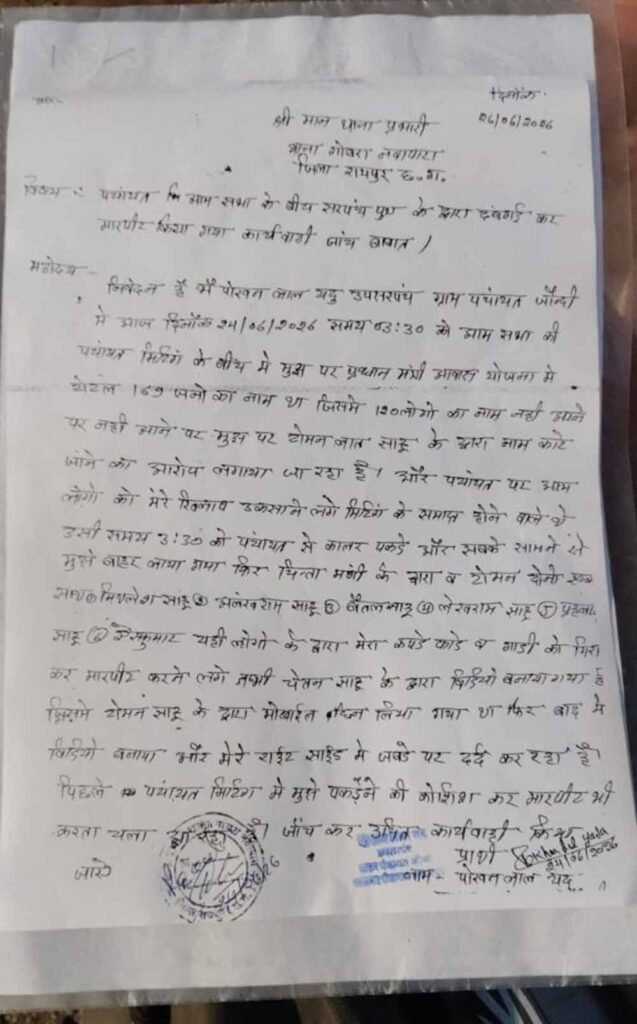 दिनांक
26/06/2026
श्री मान थाना प्रभारी
थाना गोबरा नवापारा
जिला रायपुर छ.ग.
विषय : पंचायत कि आम सभा के बीच सरपंच पुत्र के द्वारा दबंगई कर
मारपीट किया गया कार्यवाही जांच बाबत /
महोदय -
निवेदन है मैं पोखन लाल यदु उपसरपंच ग्राम पंचायत जौन्दी
मे आज दिनाँक 24/06/2026 समय 03:30 को आम सभा की
पंचायत मिटिंग के बीच मे मुझ पर प्रधान मंत्री आवास योजना मे
टोटल 169 जनो का नाम था जिसमे 120 लोगो का नाम नही आने
पर नही आने पर मुझ पर टोमन लाल साहू के द्वारा नाम काटे
जाने का आरोप लगाया जा रहा है। और पंचायत पर आम
लोगो को मेरे खिलाप उकसाने लगे मिटिंग के समाप्त होने वाले थे
उसी समय 3:30 को पंचायत से कालर पकडे और सबके सामने से
मुझे बाहर लाया गया फिर चिन्ता मणी के द्वारा व टोमन दोनो
साथ मिथलेश साहू ② अलखराम साहू ③ साहू ④ लेखराम साहू ⑤
साहू ⑥ यही लोगो के द्वारा मेरा कपडे फाडे व गाडी को गिरा
कर मारपीट करने लगे तभी चेतन साहू के द्वारा विडियो बनाया गया है
जिसमे टोमन साहू के द्वारा मोबाईल छिन लिया गया था फिर बाद मे
विडियो बनाया और मेरे राईट साईड मे जबडे पर दर्द कर रहा है।
पिछले पंचायत मिटिंग मे मुझे पकड़ने की कोशिश कर मारपीट भी
करता चला आ रहा है। जांच कर उचित कार्यवाही किया
जाये
प्रार्थी
24/06/2026
उपसरपंच
नाम पोखन लाल यदु